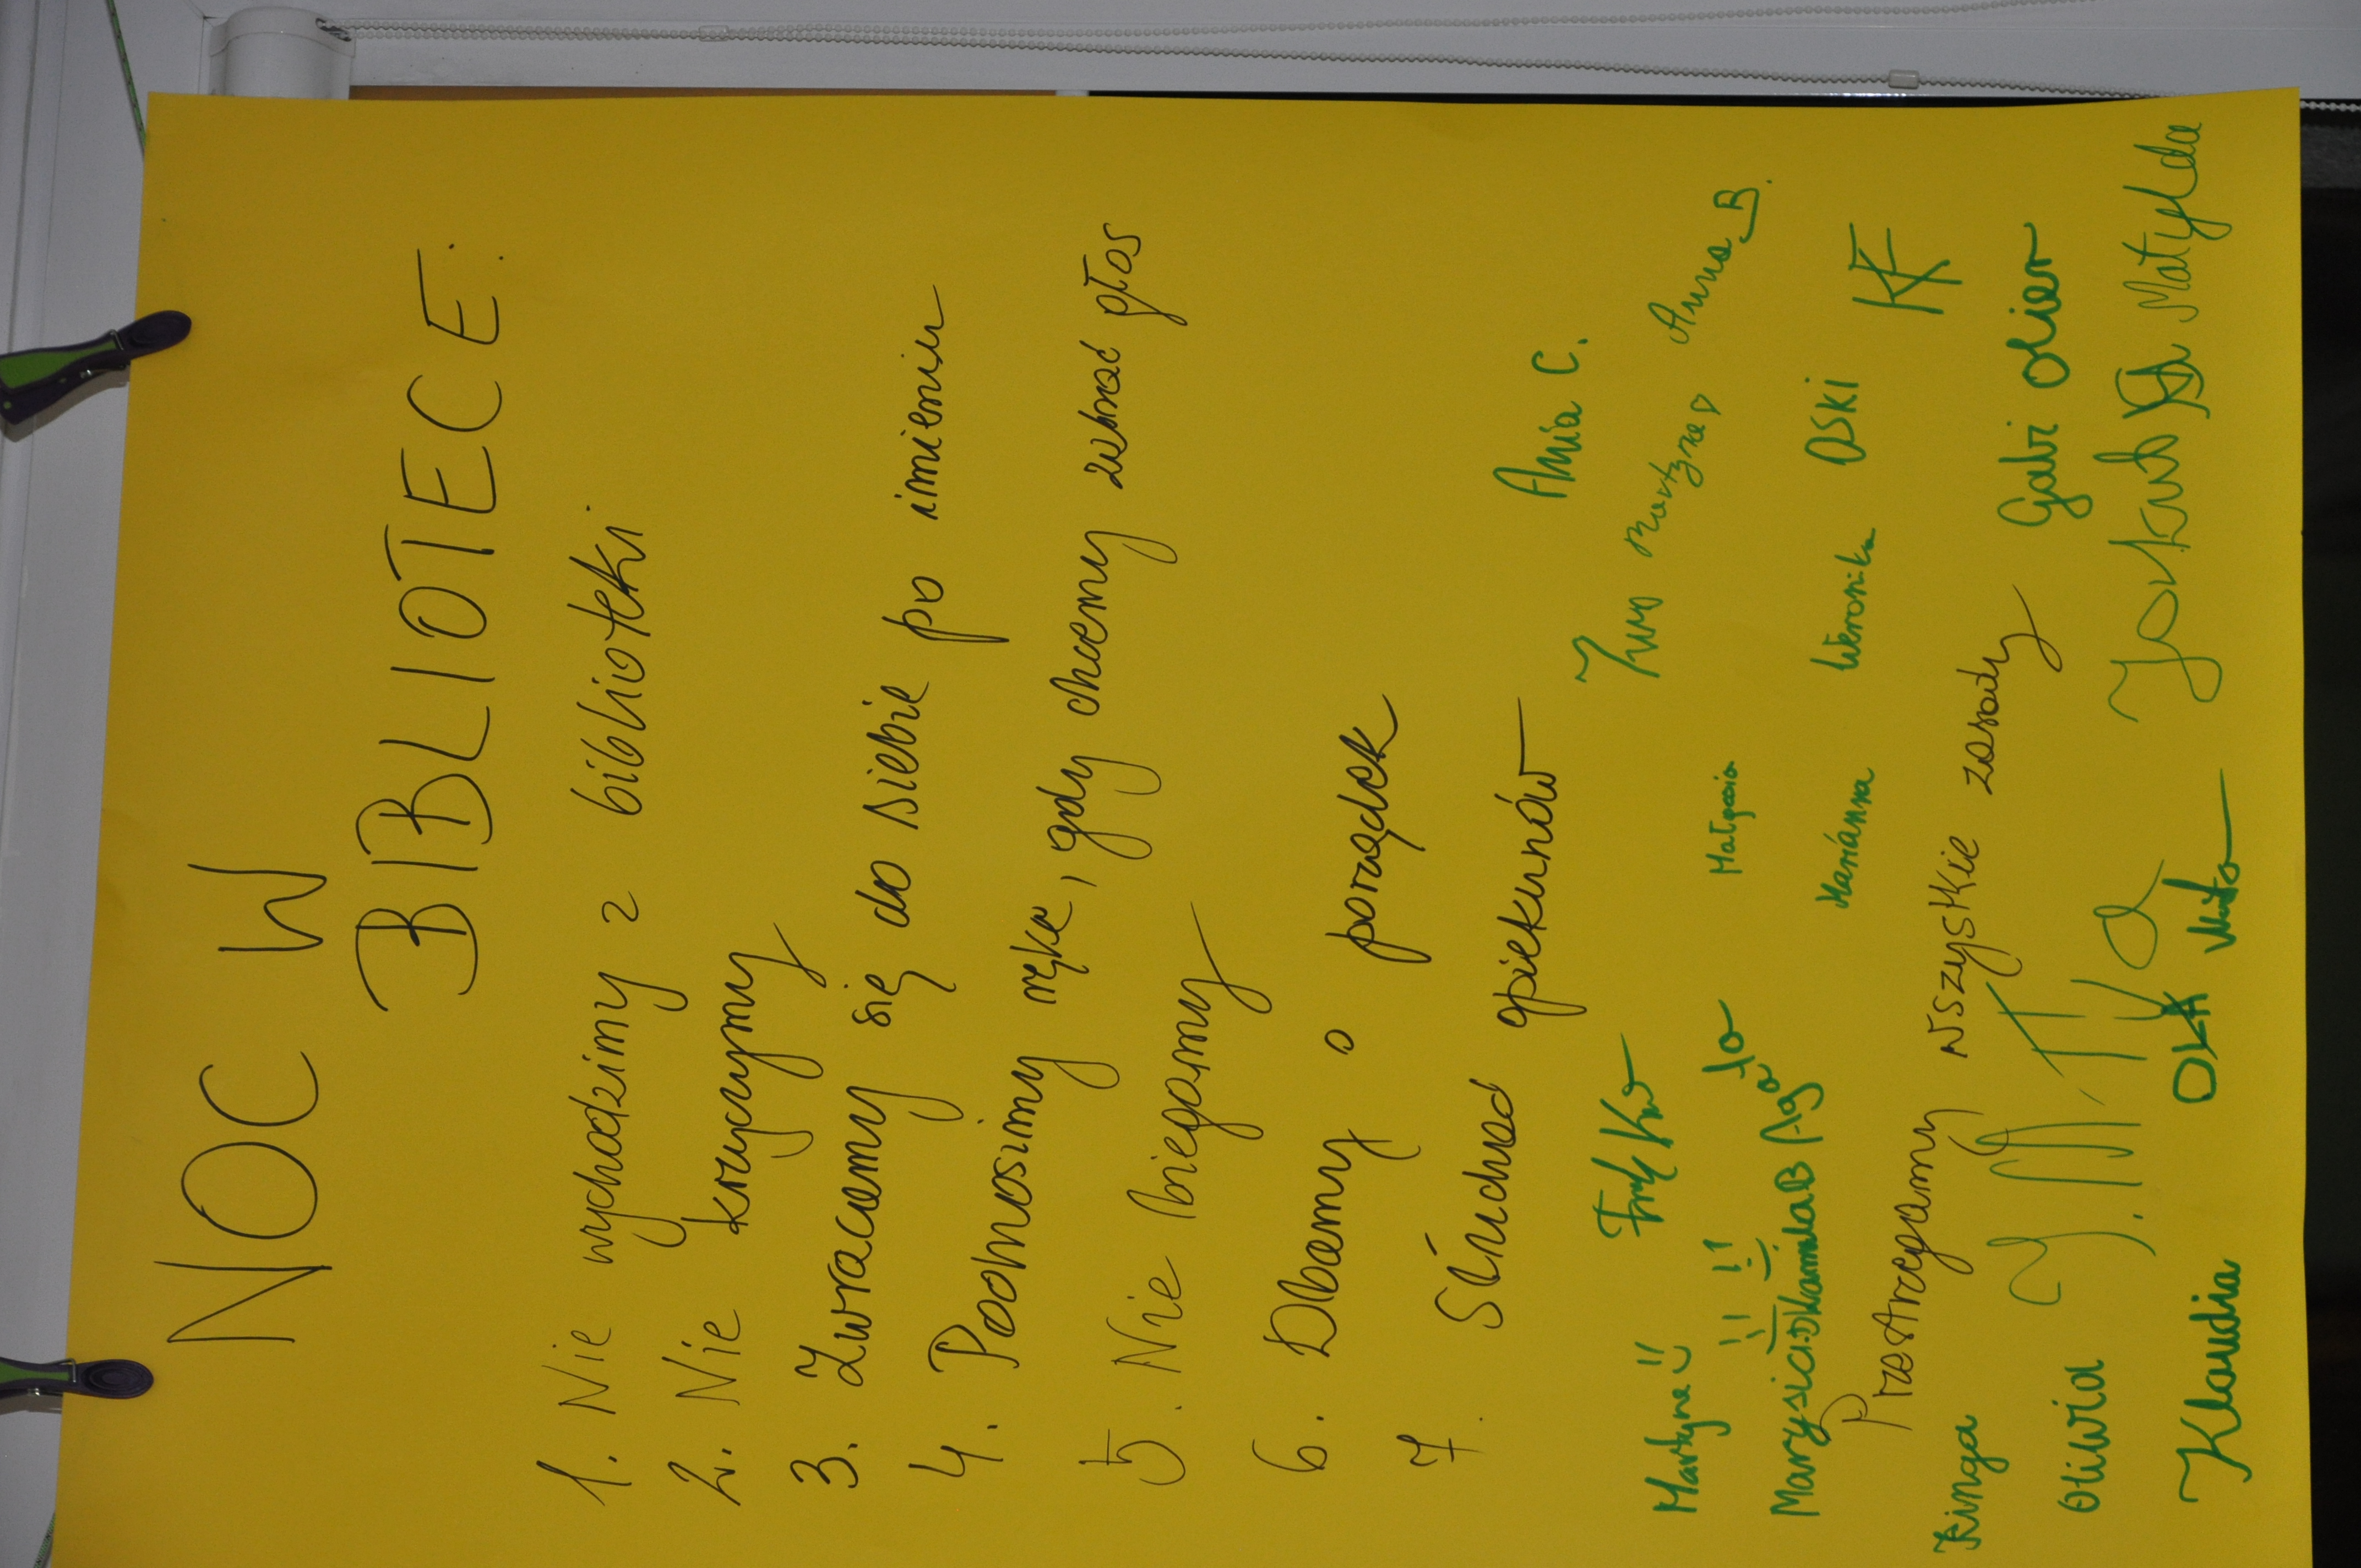 NOC W
BIBLIOTECE:
1. Nie wychodzimy z biblioteki
2. Nie krzyczymy
3. Zwracamy się do siebie po imieniu
4. Podnosimy rękę, gdy chcemy zabrać głos
5. Nie biegamy
6. Dbamy o porządek
7. Słuchać opiekunów
Ania C.
Martyna Anna B.
Martyna Małgosia
Marysia.D Kamila B Agata Marianna Weronika OSKI KF
Przestrzegamy wszystkie zasady
Kinga Gabi Olier
Oliwia Jakub Matylda
Klaudia OLA